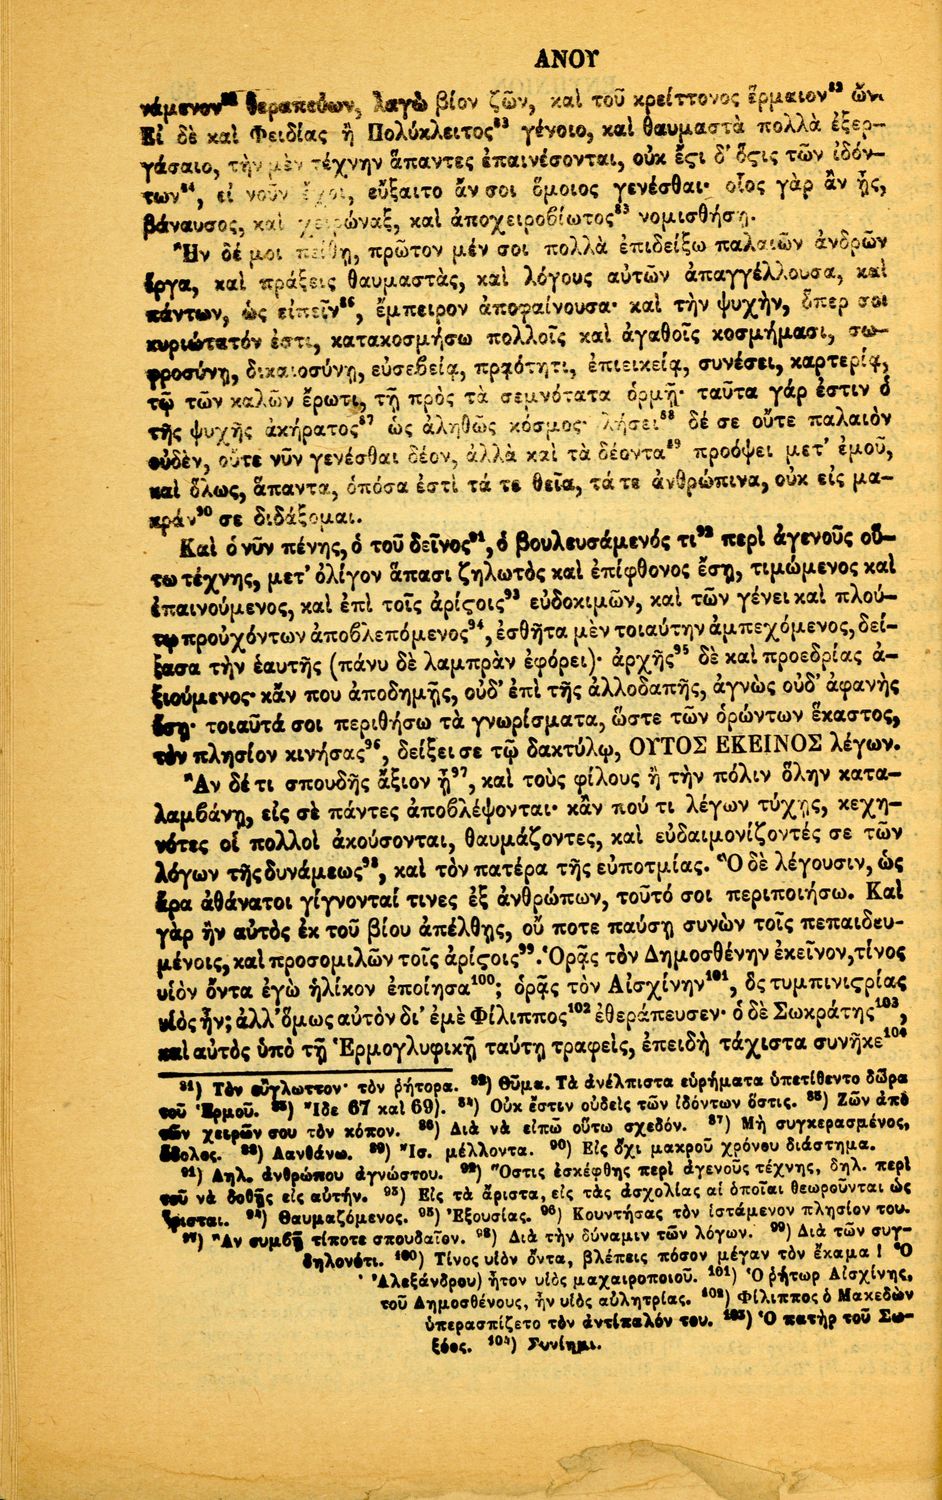 ΑΝΟΥ
νάμενον⁸¹ θεραπεύων, λαγὼ βίον ζῶν, καὶ τοῦ κρείττονος ἕρμαιον⁸² ὤν.
Εἰ δὲ καὶ Φειδίας ἢ Πολύκλειτος⁸³ γένοιο, καὶ θαυμαστὰ πολλὰ ἐξερ-
γάσαιο, τὴν μὲν τέχνην ἅπαντες ἐπαινέσονται, οὐκ ἔϛι δ' ὅϛις τῶν ἰδόν-
των⁸⁴, εἰ νοῦν ἔχοι, εὔξαιτο ἄν σοι ὅμοιος γενέσθαι· οἷος γὰρ ἂν ᾖς,
βάναυσος, καὶ χειρώναξ, καὶ ἀποχειροβίωτος⁸⁵ νομισθήσῃ.
Ἢν δέ μοι πείθῃ, πρῶτον μέν σοι πολλὰ ἐπιδείξω παλαιῶν ἀνδρῶν
ἔργα, καὶ πράξεις θαυμαστὰς, καὶ λόγους αὐτῶν ἀπαγγέλλουσα, καὶ
πάντων, ὡς εἰπεῖν⁸⁶, ἔμπειρον ἀποφαίνουσα· καὶ τὴν ψυχὴν, ὅπερ σοι
κυριώτατόν ἐστι, κατακοσμήσω πολλοῖς καὶ ἀγαθοῖς κοσμήμασι, σω-
φροσύνῃ, δικαιοσύνῃ, εὐσεβείᾳ, πρᾳότητι, ἐπιεικείᾳ, συνέσει, καρτερίᾳ,
τῷ τῶν καλῶν ἔρωτι, τῇ πρὸς τὰ σεμνότατα ὁρμῇ· ταῦτα γάρ ἐστιν ὁ
τῆς ψυχῆς ἀκήρατος⁸⁷ ὡς ἀληθῶς κόσμος· λήσει⁸⁸ δέ σε οὔτε παλαιὸν
οὐδὲν, οὔτε νῦν γενέσθαι δέον, ἀλλὰ καὶ τὰ δέοντα⁸⁹ προόψει μετ' ἐμοῦ,
καὶ ὅλως, ἅπαντα, ὁπόσα ἐστὶ τά τε θεῖα, τά τε ἀνθρώπινα, οὐκ εἰς μα-
κράν⁹⁰ σε διδάξομαι.
Καὶ ὁ νῦν πένης, ὁ τοῦ δεῖνος⁹¹, ὁ βουλευσάμενός τι⁹² περὶ ἀγενοῦς οὕ-
τω τέχνης, μετ' ὀλίγον ἅπασι ζηλωτὸς καὶ ἐπίφθονος ἔσῃ, τιμώμενος καὶ
ἐπαινούμενος, καὶ ἐπὶ τοῖς ἀρίϛοις⁹³ εὐδοκιμῶν, καὶ τῶν γένει καὶ πλού-
τῳ προὐχόντων ἀποβλεπόμενος⁹⁴, ἐσθῆτα μὲν τοιαύτην ἀμπεχόμενος, δεί-
ξασα τὴν ἑαυτῆς (πάνυ δὲ λαμπρὰν ἐφόρει)· ἀρχῆς⁹⁵ δὲ καὶ προεδρίας ἀ-
ξιούμενος· κἄν που ἀποδημῇς, οὐδ' ἐπὶ τῆς ἀλλοδαπῆς, ἀγνὼς οὐδ' ἀφανὴς
ἔσῃ· τοιαῦτά σοι περιθήσω τὰ γνωρίσματα, ὥστε τῶν ὁρώντων ἕκαστος,
τὸν πλησίον κινήσας⁹⁶, δείξει σε τῷ δακτύλῳ, ΟΥΤΟΣ ΕΚΕΙΝΟΣ λέγων.
Ἂν δέ τι σπουδῆς ἄξιον ᾖ⁹⁷, καὶ τοὺς φίλους ἢ τὴν πόλιν ὅλην κατα-
λαμβάνῃ, εἰς σὲ πάντες ἀποβλέψονται· κἄν πού τι λέγων τύχῃς, κεχη-
νότες οἱ πολλοὶ ἀκούσονται, θαυμάζοντες, καὶ εὐδαιμονίζοντές σε τῶν
λόγων τῆς δυνάμεως⁹⁸, καὶ τὸν πατέρα τῆς εὐποτμίας. Ὃ δὲ λέγουσιν, ὡς
ἄρα ἀθάνατοι γίγνονταί τινες ἐξ ἀνθρώπων, τοῦτό σοι περιποιήσω. Καὶ
γὰρ ἢν αὐτὸς ἐκ τοῦ βίου ἀπέλθῃς, οὔ ποτε παύσῃ συνὼν τοῖς πεπαιδευ-
μένοις, καὶ προσομιλῶν τοῖς ἀρίϛοις⁹⁹. Ὁρᾷς τὸν Δημοσθένην ἐκεῖνον, τίνος
υἱὸν ὄντα ἐγὼ ἡλίκον ἐποίησα¹⁰⁰; ὁρᾷς τὸν Αἰσχίνην¹⁰¹, ὃς τυμπινιϛρίας
υἱὸς ἦν; ἀλλ' ὅμως αὐτὸν δι' ἐμὲ Φίλιππος¹⁰² ἐθεράπευσεν· ὁ δὲ Σωκράτης¹⁰³,
καὶ αὐτὸς ὑπὸ τῇ Ἑρμογλυφικῇ ταύτῃ τραφεὶς, ἐπειδὴ τάχιστα συνῆκε¹⁰⁴
⁸¹) Τὸν εὔγλωττον· τὸν ῥήτορα. ⁸²) Θῦμα. Τὰ ἀνέλπιστα εὑρήματα ὑπετίθεντο δῶρα
τοῦ Ἑρμοῦ. ⁸³) Ἴδε 67 καὶ 69). ⁸⁴) Οὐκ ἔστιν οὐδεὶς τῶν ἰδόντων ὅστις. ⁸⁵) Ζῶν ἀπὸ
τῶν χειρῶν σου τὸν κόπον. ⁸⁶) Διὰ νὰ εἰπῶ οὕτω σχεδόν. ⁸⁷) Μὴ συγκερασμένος,
ἄδολος. ⁸⁸) Λανθάνω. ⁸⁹) Ἴσ. μέλλοντα. ⁹⁰) Εἰς ὄχι μακροῦ χρόνου διάστημα.
⁹¹) Δηλ. ἀνθρώπου ἀγνώστου. ⁹²) Ὅστις ἐσκέφθης περὶ ἀγενοῦς τέχνης, δηλ. περὶ
τοῦ νὰ δοθῇς εἰς αὐτήν. ⁹³) Εἰς τὰ ἄριστα, εἰς τὰς ἀσχολίας αἱ ὁποῖαι θεωροῦνται ὡς
ἄρισται. ⁹⁴) Θαυμαζόμενος. ⁹⁵) Ἐξουσίας. ⁹⁶) Κουντήσας τὸν ἱστάμενον πλησίον του.
⁹⁷) Ἂν συμβῇ τίποτε σπουδαῖον. ⁹⁸) Διὰ τὴν δύναμιν τῶν λόγων. ⁹⁹) Διὰ τῶν συγ-
δηλονότι. ¹⁰⁰) Τίνος υἱὸν ὄντα, βλέπεις πόσον μέγαν τὸν ἔκαμα! Ὁ
Ἀλεξάνδρου) ἦτον υἱὸς μαχαιροποιοῦ. ¹⁰¹) Ὁ ῥήτωρ Αἰσχίνης,
τοῦ Δημοσθένους, ἦν υἱὸς αὐλητρίας. ¹⁰²) Φίλιππος ὁ Μακεδὼν
ὑπερασπίζετο τὸν ἀντίπαλόν του. ¹⁰³) Ὁ πατὴρ τοῦ Σω-
ξόος. ¹⁰⁴) Συνίημι.